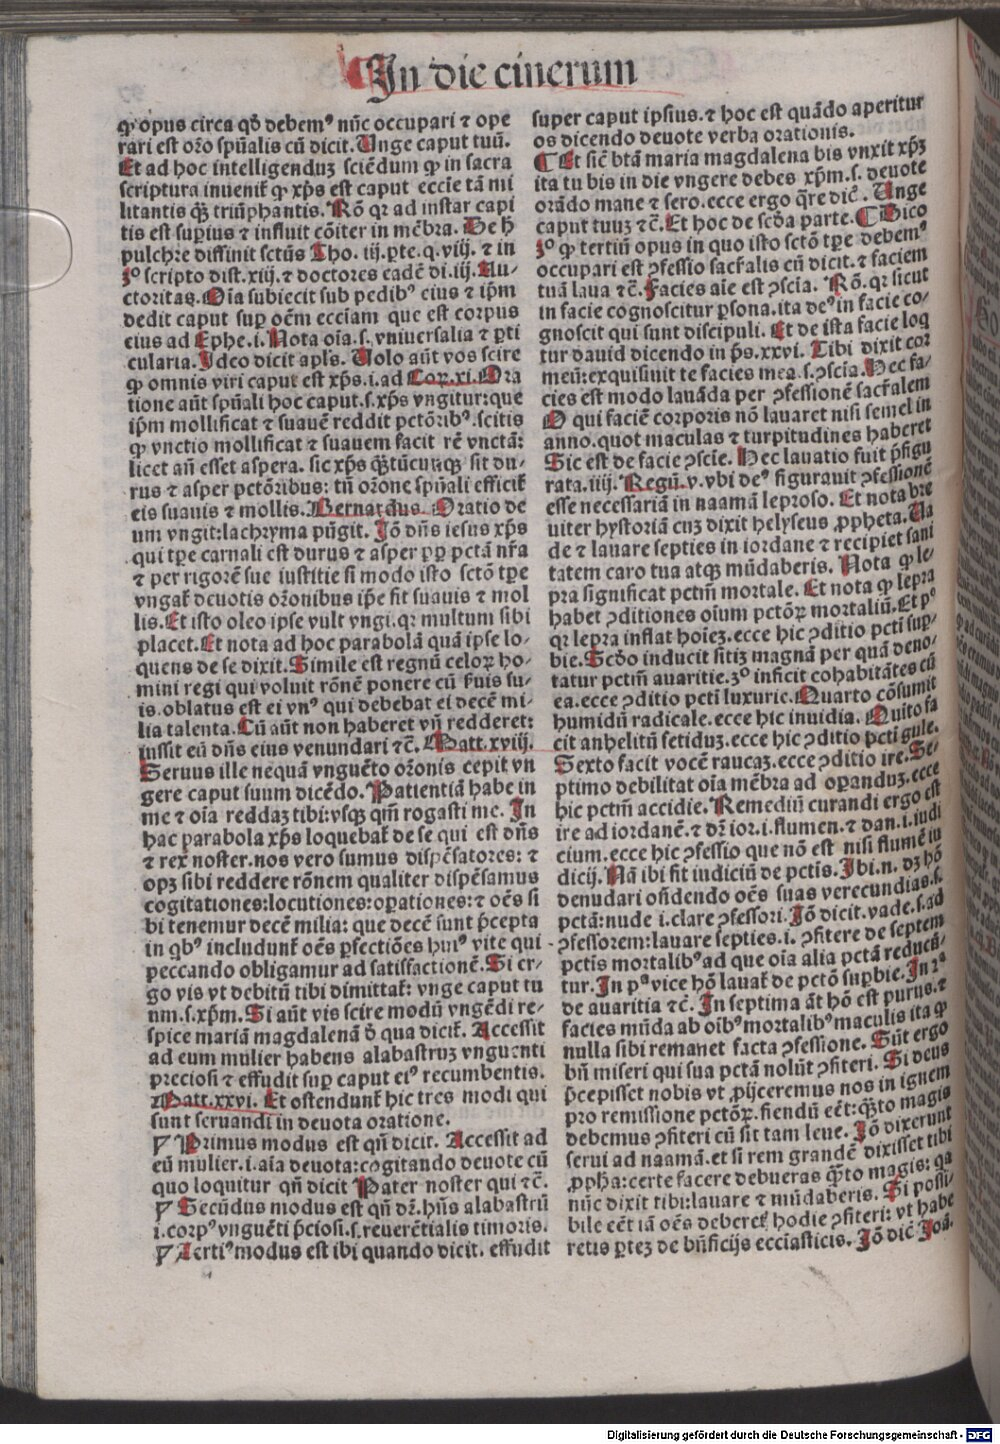 In die cinerum
ꝙ opus circa qḋ debemꝰ nūc occupari ⁊ ope
rari est or̄o spūalis cū dicit. Unge caput tuū.
Et ad hoc intelligenduꝫ sciēdum ꝙ in sacra
scriptura inuenit̄ ꝙ xp̄s est caput eccīe tā mi
litantis qꝫ̄ triūphantis. Rō qꝛ ad instar capi
tis est supius ⁊ influit cōiter in mēbra. De h̄
pulchre diffinit sctūs Tho. iij. pte. q. viij. ⁊ in
ȝº scripto dist. xiij. ⁊ doctores eadē di. iij. Au-
ctoritas. Oīa subiecit sub pedibꝰ eius ⁊ ip̄m
dedit caput sup oēm eccīam que est corpus
eius ad Ephe. i. Nota oīa. s. vniuersalia ⁊ pti
cularia. Ideo dicit apls. Uolo aūt vos scire
ꝙ omnis viri caput est xp̄s. i. ad Coꝛ. xi. Ora
tione aūt spūali hoc caput. s. xp̄s vngitur: que
ip̄m mollificat ⁊ suauē reddit pctōribꝰ. scitis
ꝙ vnctio mollificat ⁊ suauem facit rē vnctā:
licet añ esset aspera. sic xp̄s qꝫ̄tūcunqꝫ sit du-
rus ⁊ asper pctōribus: tn̄ or̄one spūali efficit̄
eis suauis ⁊ mollis. Bernardus. Oratio de
um vngit: lachryma pūgit. Iō dn̄s iesus xp̄s
qui tp̄e carnali est durus ⁊ asper ꝓpter pctā nr̄a
⁊ per rigorē sue iustitie si modo isto sctō tp̄e
vngat̄ deuotis or̄onibus ip̄e fit suauis ⁊ mol
lis. Et isto oleo ipse vult vngi. qꝛ multum sibi
placet. Et nota ad hoc parabolā quā ipse lo-
quens de se dixit. Simile est regnū celoꝝ ho-
mini regi qui voluit rōnē ponere cū ẜuis su-
is. oblatus est ei vnꝰ qui debebat ei decē mi-
lia talenta. Cū aūt non haberet vñ redderet:
iussit eū dn̄s eius venundari ⁊c̄. Matt. xviij.
Seruus ille nequā vnguēto or̄onis cepit vn
gere caput suum dicēdo. Patientiā habe in
me ⁊ oīa reddaꝫ tibi: vsqꝫ qm̄ rogasti me. In
hac parabola xp̄s loquebat̄ de se qui est dn̄s
⁊ rex noster. nos vero sumus dispēsatores: ⁊
opꝫ sibi reddere rōnem qualiter dispēsamus
cogitationes: locutiones: opationes: ⁊ oēs si
bi tenemur decē milia: que decē sunt p̄cepta
in qbꝰ includunt̄ oēs pfectiōes huiꝰ vite qui
peccando obligamur ad satisfactionē. Si er-
go vis vt debitū tibi dimittat̄: vnge caput tu
um. s. xp̄m. Si aūt vis scire modū vngēdi re-
spice mariā magdalenā ḋ qua dicit̄. Accessit
ad eum mulier habens alabastruꝫ vnguenti
preciosi ⁊ effudit sup caput eiꝰ recumbentis.
Matt. xxvi. Et ostendunt̄ hic tres modi qui
sunt seruandi in deuota oratione.
Primus modus est qn̄ dicit. Accessit ad
eū mulier. i. aīa deuota: cogitando deuote cū
quo loquitur qn̄ dicit Pater noster qui ⁊c̄.
Secūdus modus est qn̄ dr̄. hn̄s alabastrū
i. corpꝰ vnguēti p̄ciosi. s. reuerētialis timoris.
Tertiꝰ modus est ibi quando dicit. effudit
super caput ipsius. ⁊ hoc est quādo aperitur
os dicendo deuote verba orationis.
Et sic̄ btā maria magdalena bis vnxit xp̄ꝫ
ita tu bis in die vngere debes xp̄m. s. deuote
orādo mane ⁊ sero. ecce ergo q̄re dic̄. Unge
caput tuuꝫ ⁊c̄. Et hoc de scḋa parte. Dico
ȝº ꝙ tertiū opus in quo isto sctō tp̄e debemꝰ
occupari est ꝯfessio sacr̄alis cū dicit. ⁊ faciem
tuā laua ⁊c̄. Facies aīe est ꝯscīa. Rō. qꝛ sicut
in facie cognoscitur psona. ita deꝰ in facie co-
gnoscit qui sunt discipuli. Et de ista facie loq
tur dauid dicendo in p̄s. xxvi. Tibi dixit cor
meū: exquisiuit te facies mea. s. ꝯscīa. Hec fa-
cies est modo lauāda per ꝯfessionē sacr̄alem
O qui faciē corporis nō lauaret nisi semel in
anno. quot maculas ⁊ turpitudines haberet
Sic est de facie ꝯscīe. Hec lauatio fuit p̄figu
rata. iiij. Regū. v. vbi deꝰ figurauit ꝯfessionē
esse necessariā in naamā leproso. Et nota bre
uiter hystoriā cuꝫ dixit helyseus ꝓpheta. Ua
de ⁊ lauare septies in iordane ⁊ recipiet sani
tatem caro tua atqꝫ mūdaberis. Nota ꝙ le-
pra significat pctm̄ mortale. Et nota ꝙ lepra
habet ꝯditiones oīum pctōꝝ mortaliū. Et pº
qꝛ lepra inflat hoīeꝫ. ecce hic ꝯditio pctī sup-
bie. Scḋo inducit sitiꝫ magnā per quā deno-
tatur pctm̄ auaritie. ȝº inficit cohabitātes cū
ea. ecce ꝯditio pctī luxurie. Quarto cōsumit
humidū radicale. ecce hic inuidia. Quito fa
cit anhelitū fetiduꝫ. ecce hic ꝯditio pctī gule.
Sexto facit vocē raucaꝫ. ecce ꝯditio ire. Se-
ptimo debilitat oīa mēbra ad opanduꝫ. ecce
hic pctm̄ accidie. Remediū curandi ergo est
ire ad iordanē. ⁊ dr̄ ior. i. flumen. ⁊ dan. i. iudi
cium. ecce hic ꝯfessio que nō est nisi flumē iu
dicij. Nā ibi fit iudiciū de pctis. Ibi. n. dꝫ hō
denudari ostendo oēs suas verecundias. s.
pctā: nude i. clare ꝯfessori. Iō dicit. vade. s. ad
ꝯfessorem: lauare septies. i. ꝯfitere de septem
pctis mortalibꝰ ad que oīa alia pctā reducū-
tur. In pª vice hō lauat̄ de pctō supbie. In 2ª
de auaritia ⁊c̄. In septima āt hō est purus. ⁊
facies mūda ab oībꝰ mortalibꝰ maculis ita ꝙ
nulla sibi remanet facta ꝯfessione. Sūt ergo
bn̄ miseri qui sua pctā nolūt ꝯfiteri. Si deus
p̄cepisset nobis vt ꝓijceremus nos in ignem
pro remissione pctōꝝ. fiendū eēt: qꝫ̄to magis
debemus ꝯfiteri cū sit tam leue. Iō dixerunt
serui ad naamā. et si rem grandē dixisset tibi
ꝓpha: certe facere debueras qꝫ̄to magis: qa
nūc dixit tibi: lauare ⁊ mūdaberis. Si possi-
bile eēt iā oēs deberet̄ hodie ꝯfiteri: vt habe
retis pteꝫ de bn̄ficijs ecciasticis. Iō dic̄ Joā.
Digitalisierung gefördert durch die Deutsche Forschungsgemeinschaft - DFG